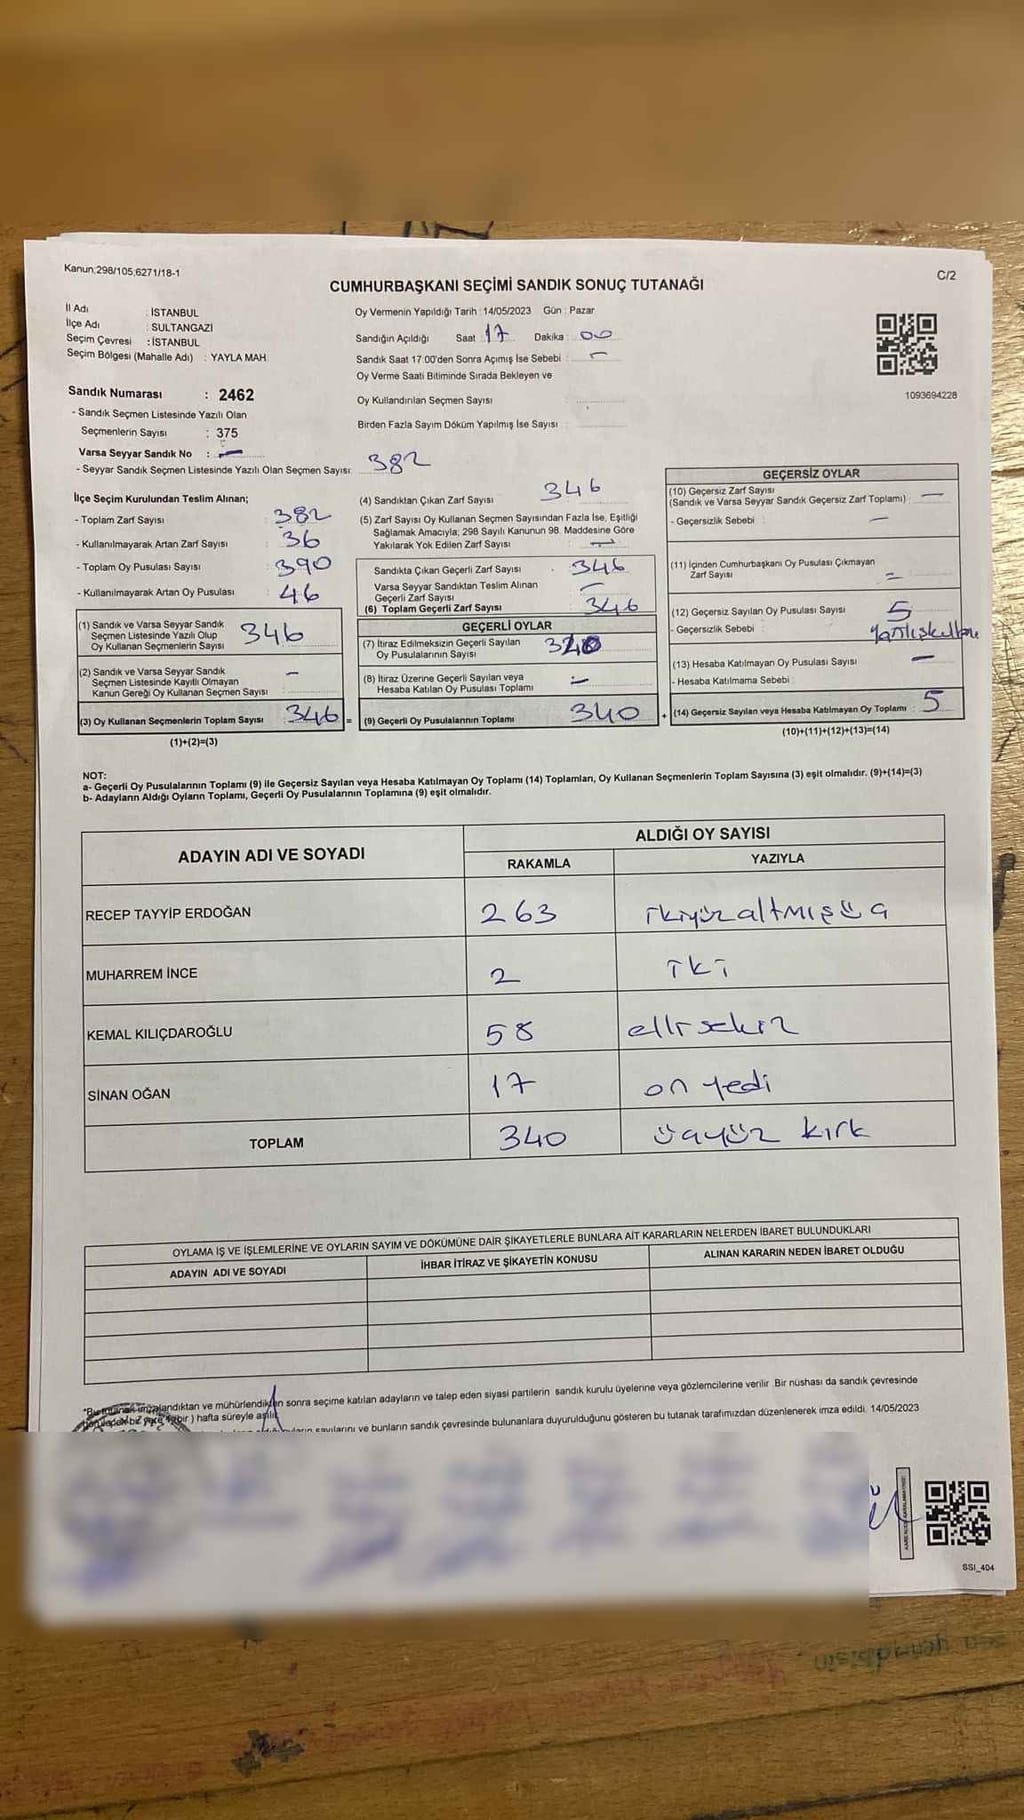 Kanun;298/105;6271/18-1
C/2
CUMHURBAŞKANI SEÇİMİ SANDIK SONUÇ TUTANAĞI
İl Adı : İSTANBUL
İlçe Adı : SULTANGAZİ
Seçim Çevresi : İSTANBUL
Seçim Bölgesi (Mahalle Adı) : YAYLA MAH
Sandık Numarası : 2462
- Sandık Seçmen Listesinde Yazılı Olan
Seçmenlerin Sayısı : 375
Varsa Seyyar Sandık No : -
- Seyyar Sandık Seçmen Listesinde Yazılı Olan Seçmen Sayısı: 382
Oy Vermenin Yapıldığı Tarih : 14/05/2023 Gün : Pazar
Sandığın Açıldığı Saat 17 Dakika : 00
Sandık Saat 17:00'den Sonra Açımış İse Sebebi : -
Oy Verme Saati Bitiminde Sırada Bekleyen ve
Oy Kullandırılan Seçmen Sayısı :
Birden Fazla Sayım Döküm Yapılmış İse Sayısı :
1093694228
İlçe Seçim Kurulundan Teslim Alınan;
- Toplam Zarf Sayısı : 382
- Kullanılmayarak Artan Zarf Sayısı : 36
- Toplam Oy Pusulası Sayısı : 390
- Kullanılmayarak Artan Oy Pusulası : 46
(1) Sandık ve Varsa Seyyar Sandık
Seçmen Listesinde Yazılı Olup
Oy Kullanan Seçmenlerin Sayısı 346
(2) Sandık ve Varsa Seyyar Sandık
Seçmen Listesinde Kayıtlı Olmayan
Kanun Gereği Oy Kullanan Seçmen Sayısı : -
(3) Oy Kullanan Seçmenlerin Toplam Sayısı 346 =
(1)+(2)=(3)
(4) Sandıktan Çıkan Zarf Sayısı 346
(5) Zarf Sayısı Oy Kullanan Seçmen Sayısından Fazla İse, Eşitliği
Sağlamak Amacıyla; 298 Sayılı Kanunun 98. Maddesine Göre
Yakılarak Yok Edilen Zarf Sayısı : -
Sandıkta Çıkan Geçerli Zarf Sayısı 346
Varsa Seyyar Sandıktan Teslim Alınan
Geçerli Zarf Sayısı -
(6) Toplam Geçerli Zarf Sayısı 346
GEÇERLİ OYLAR
(7) İtiraz Edilmeksizin Geçerli Sayılan
Oy Pusulalarının Sayısı
(8) İtiraz Üzerine Geçerli Sayılan veya
Hesaba Katılan Oy Pusulası Toplamı : -
(9) Geçerli Oy Pusulalarının Toplamı 340 +
GEÇERSİZ OYLAR
(10) Geçersiz Zarf Sayısı
(Sandık ve Varsa Seyyar Sandık Geçersiz Zarf Toplamı) : -
- Geçersizlik Sebebi : -
(11) İçinden Cumhurbaşkanı Oy Pusulası Çıkmayan
Zarf Sayısı : -
(12) Geçersiz Sayılan Oy Pusulası Sayısı : 5
- Geçersizlik Sebebi :
(13) Hesaba Katılmayan Oy Pusulası Sayısı : -
- Hesaba Katılmama Sebebi :
(14) Geçersiz Sayılan veya Hesaba Katılmayan Oy Toplamı : 5
(10)+(11)+(12)+(13)=(14)
NOT:
a- Geçerli Oy Pusulalarının Toplamı (9) ile Geçersiz Sayılan veya Hesaba Katılmayan Oy Toplamı (14) Toplamları, Oy Kullanan Seçmenlerin Toplam Sayısına (3) eşit olmalıdır. (9)+(14)=(3)
b- Adayların Aldığı Oyların Toplamı, Geçerli Oy Pusulalarının Toplamına (9) eşit olmalıdır.
ADAYIN ADI VE SOYADI
ALDIĞI OY SAYISI
RAKAMLA YAZIYLA
RECEP TAYYİP ERDOĞAN 263 ikiyüzaltmışüç
MUHARREM İNCE 2 iki
KEMAL KILIÇDAROĞLU 58 ellisekiz
SİNAN OĞAN 17 on yedi
TOPLAM 340 üçyüz kırk
OYLAMA İŞ VE İŞLEMLERİNE VE OYLARIN SAYIM VE DÖKÜMÜNE DAİR ŞİKAYETLERLE BUNLARA AİT KARARLARIN NELERDEN İBARET BULUNDUKLARI
ADAYIN ADI VE SOYADI İHBAR İTİRAZ VE ŞİKAYETİN KONUSU ALINAN KARARIN NEDEN İBARET OLDUĞU
*Bu tutanak imzalandıktan ve mühürlendikten sonra seçime katılan adayların ve talep eden siyasi partilerin sandık kurulu üyelerine veya gözlemcilerine verilir. Bir nüshası da sandık çevresinde
bir ) hafta süreyle asılır.
sayılarını ve bunların sandık çevresinde bulunanlara duyurulduğunu gösteren bu tutanak tarafımızdan düzenlenerek imza edildi. 14/05/2023
SSI_404